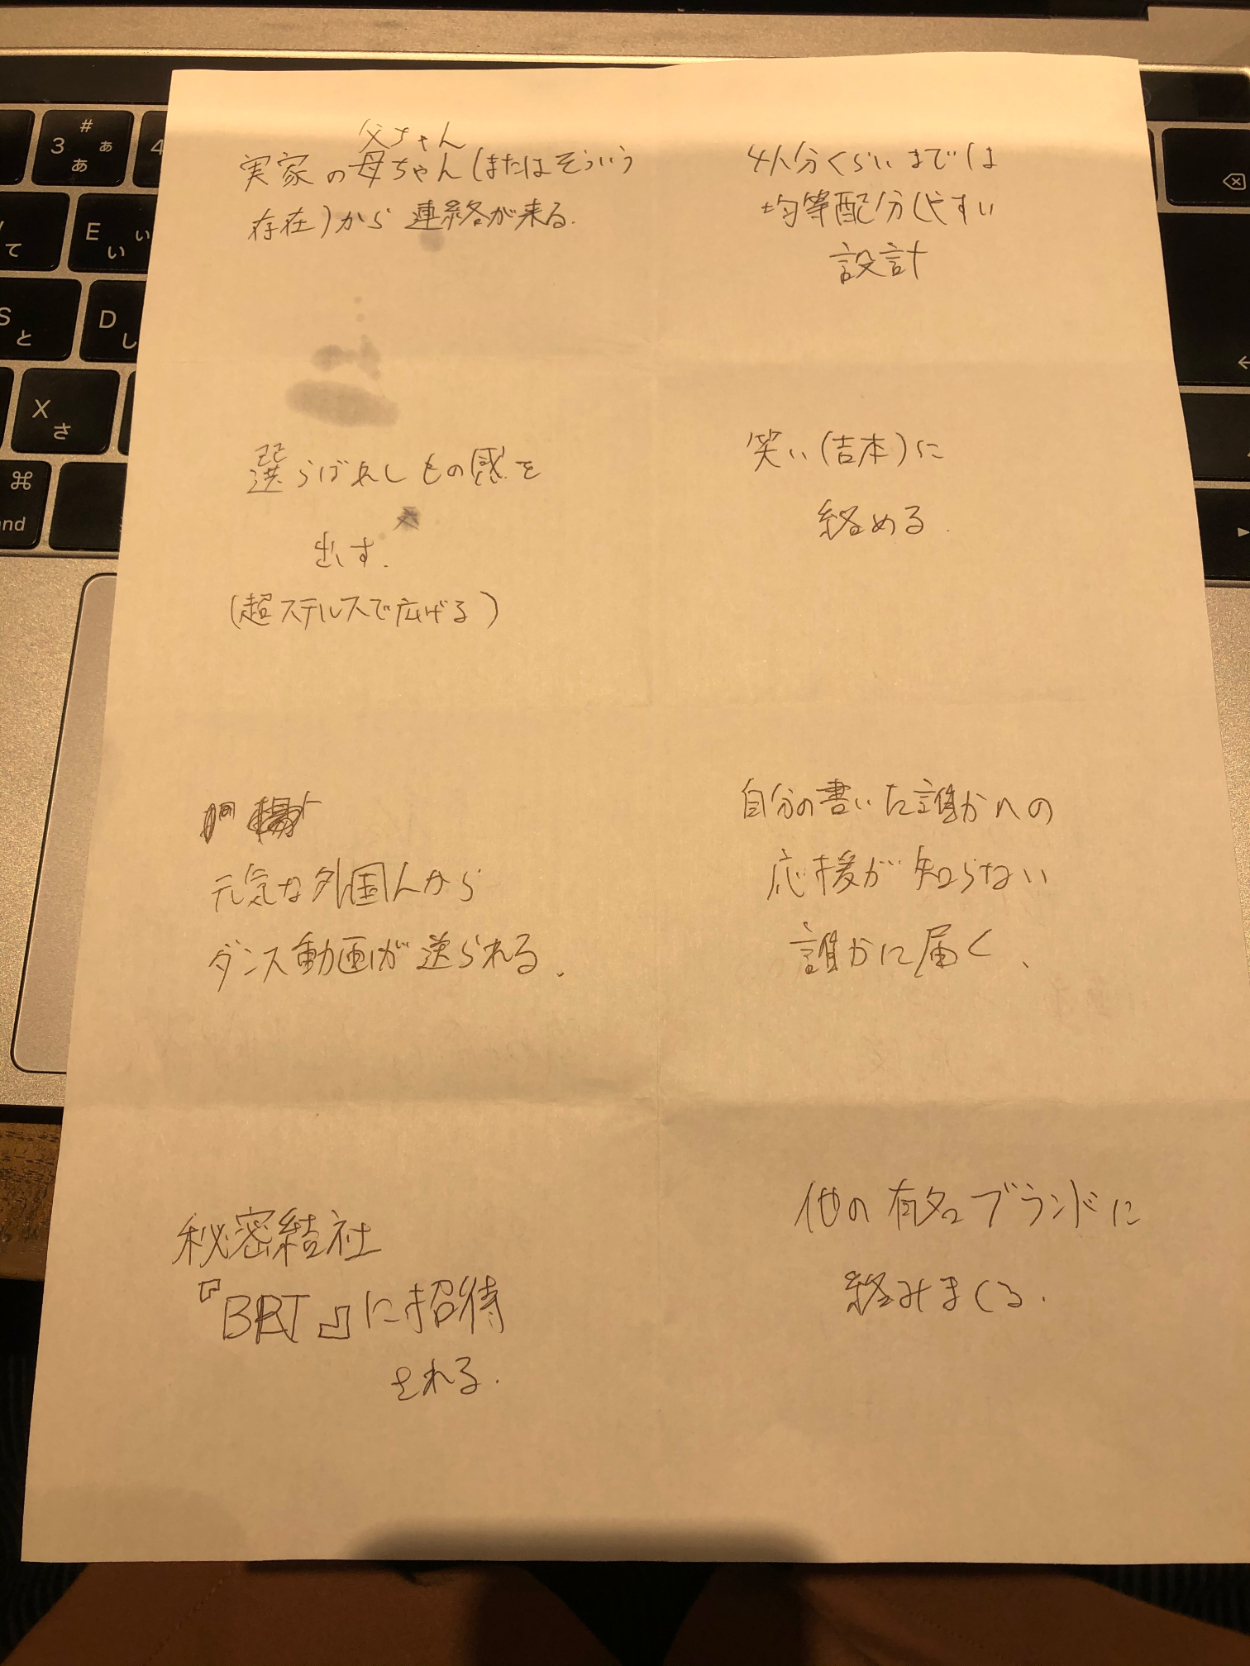 父ちゃん
実家の母ちゃん(またはそういう
存在)から連絡が来る.
4人分くらいまでは
均等配分しやすい
設計
選らばれしもの感を
出す.
(超ステルスで広げる)
笑い(吉本)に
絡める.
元気な外国人から
ダンス動画が送られる.
自分の書いた誰かへの
応援が知らない
誰かに届く、
秘密結社
『BRT』に招待
される.
他の有名ブランドに
絡みまくる.
3
#
あ
ぁ
4
て
E
い
ぃ
S
と
D
し
X
さ
⌘